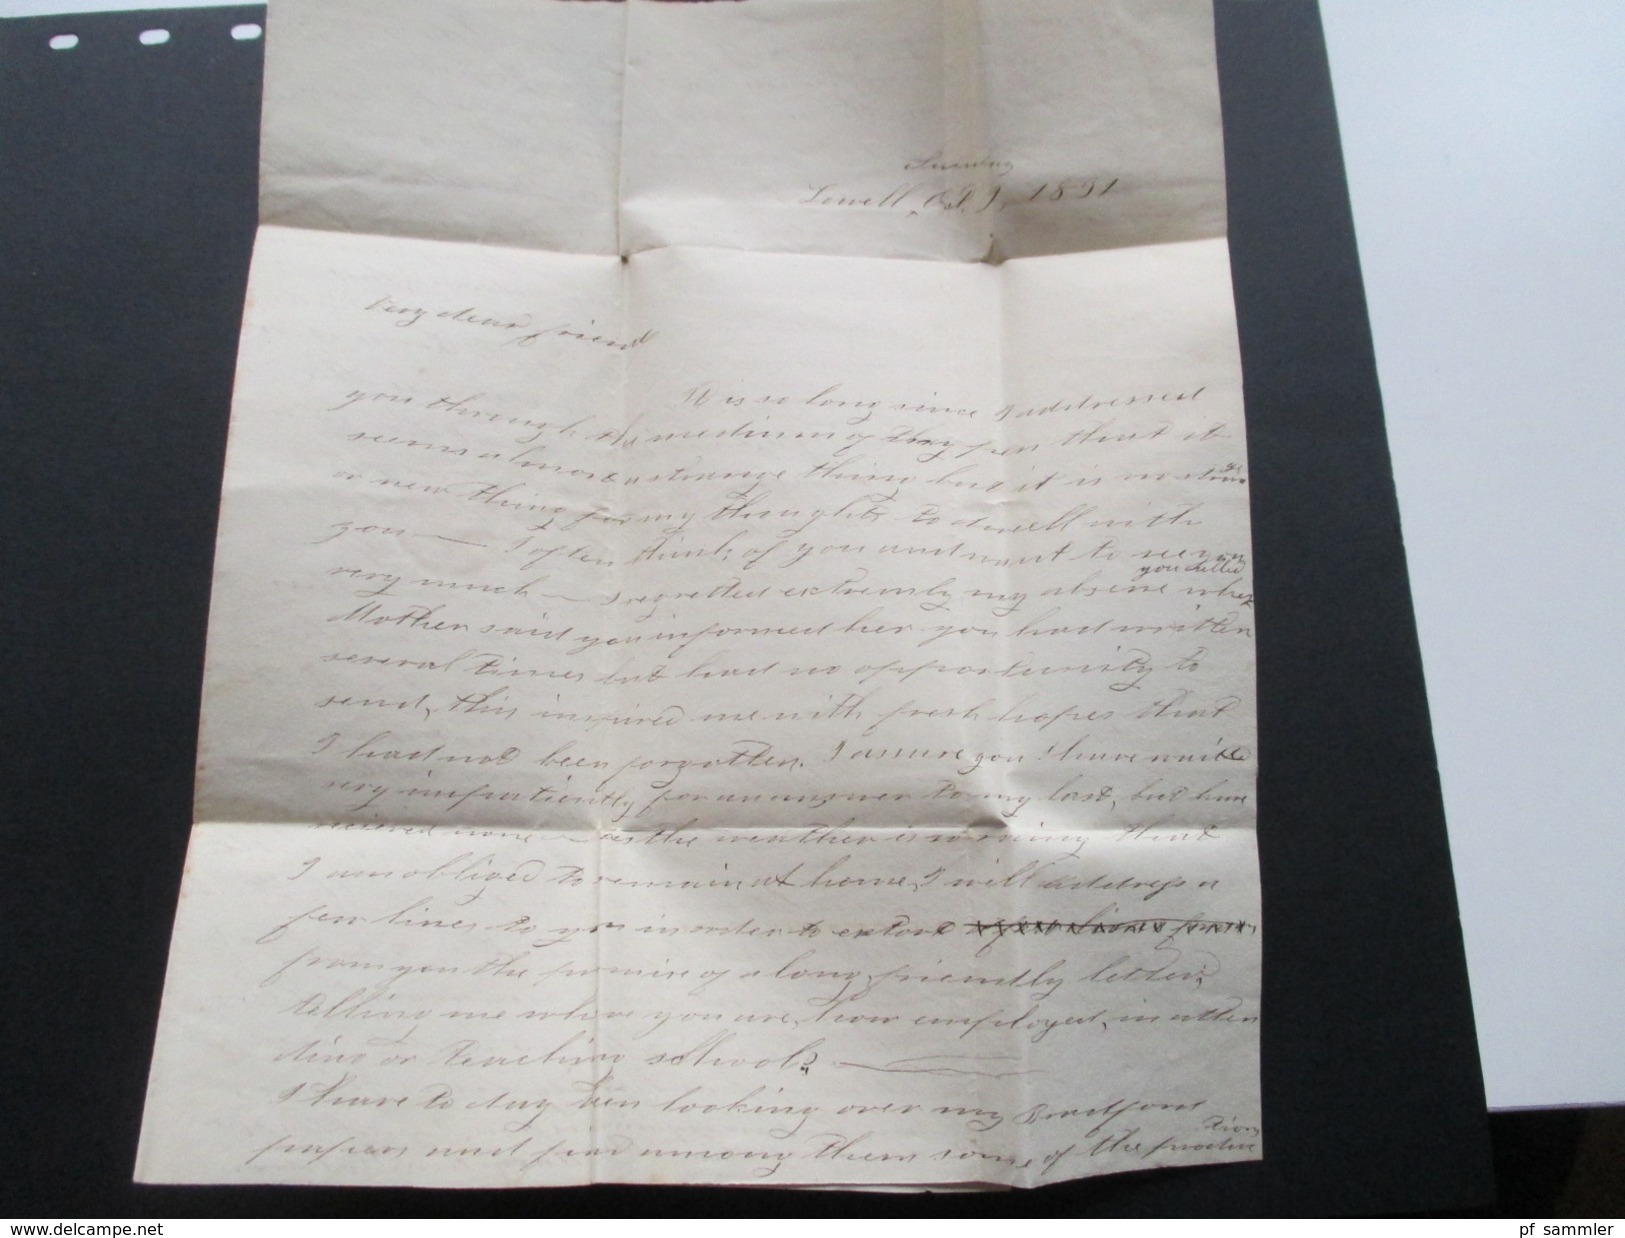 Sunday
Lowell, Oct. 9, 1831
Very dear friend
It is so long since I addressed
you through the medium of my pen that it
seems almost a strange thing but it is no strange
or new thing for my thoughts to dwell with
you — I often think of you and want to see you
very much — I regretted extremly my absene when you called
Mother said you informed her you had written
several times but had no opportunity to
send, this inspired me with fresh hopes that
I had not been forgotten. I assure you I have waited
very impatiently for an answer to my last, but have
recieved none — as the weather is so rainy that
I am obliged to remain at home, I will address a
few lines to you in order to extort a few lines from
from you the promise of a long, friendly letter,
telling me where you are, how employed, in atten
ding or teaching school? —
I have to day been looking over my Bradford
papers and find among them some of the productions
www.delcampe.net
pf sammler